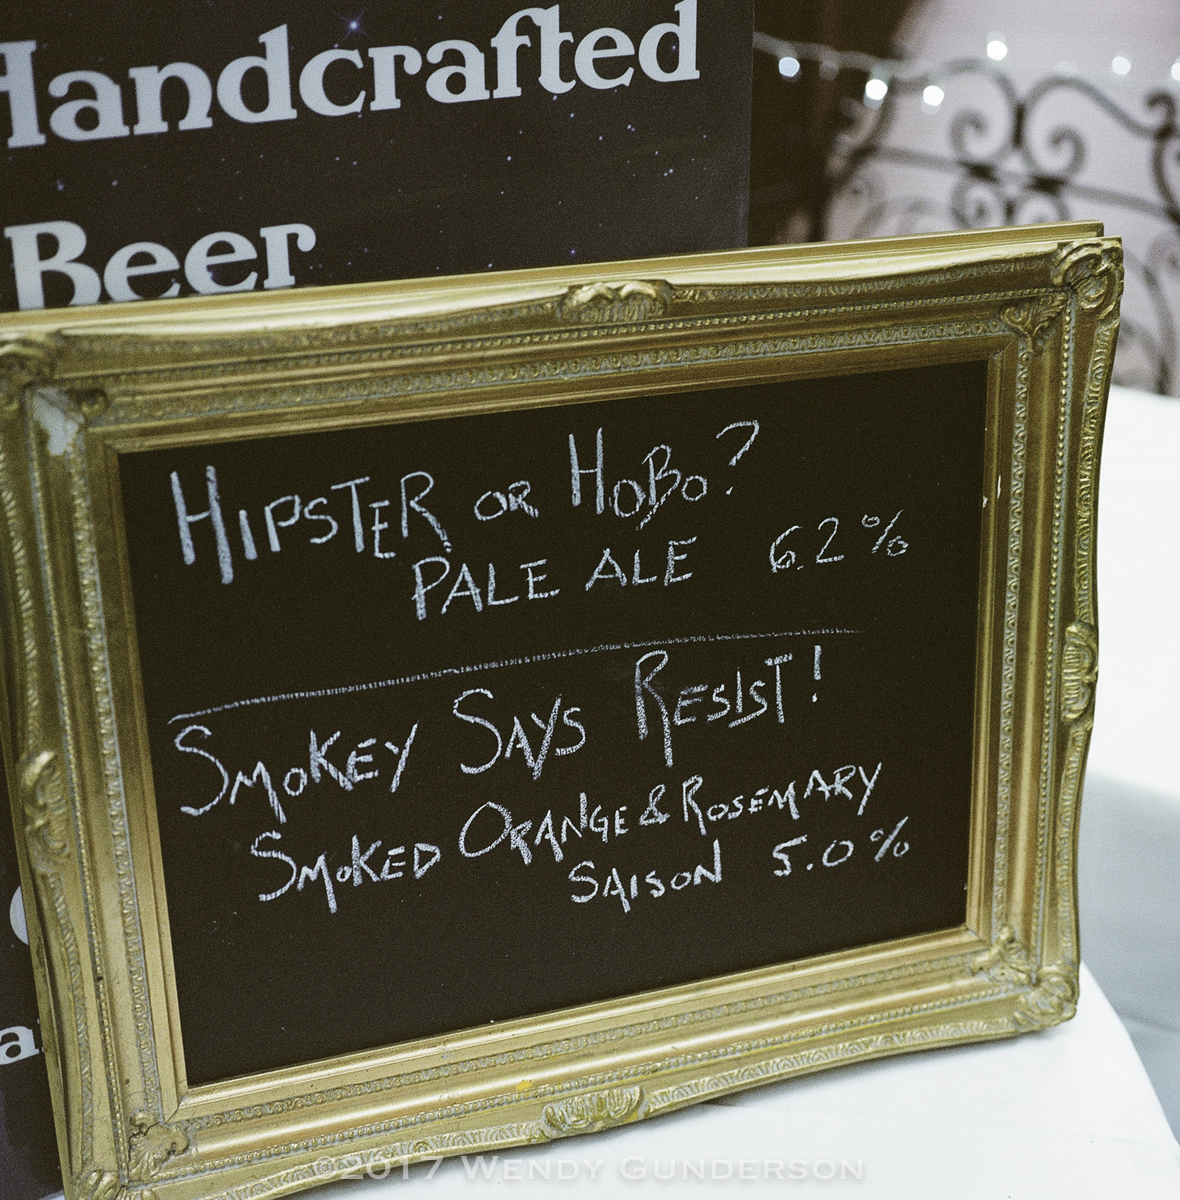 Handcrafted
Beer
HIPSTER OR HOBO?
PALE ALE 6.2%
SMOKEY SAYS RESIST!
SMOKED ORANGE & ROSEMARY
SAISON 5.0%
©2017 WENDY GUNDERSON